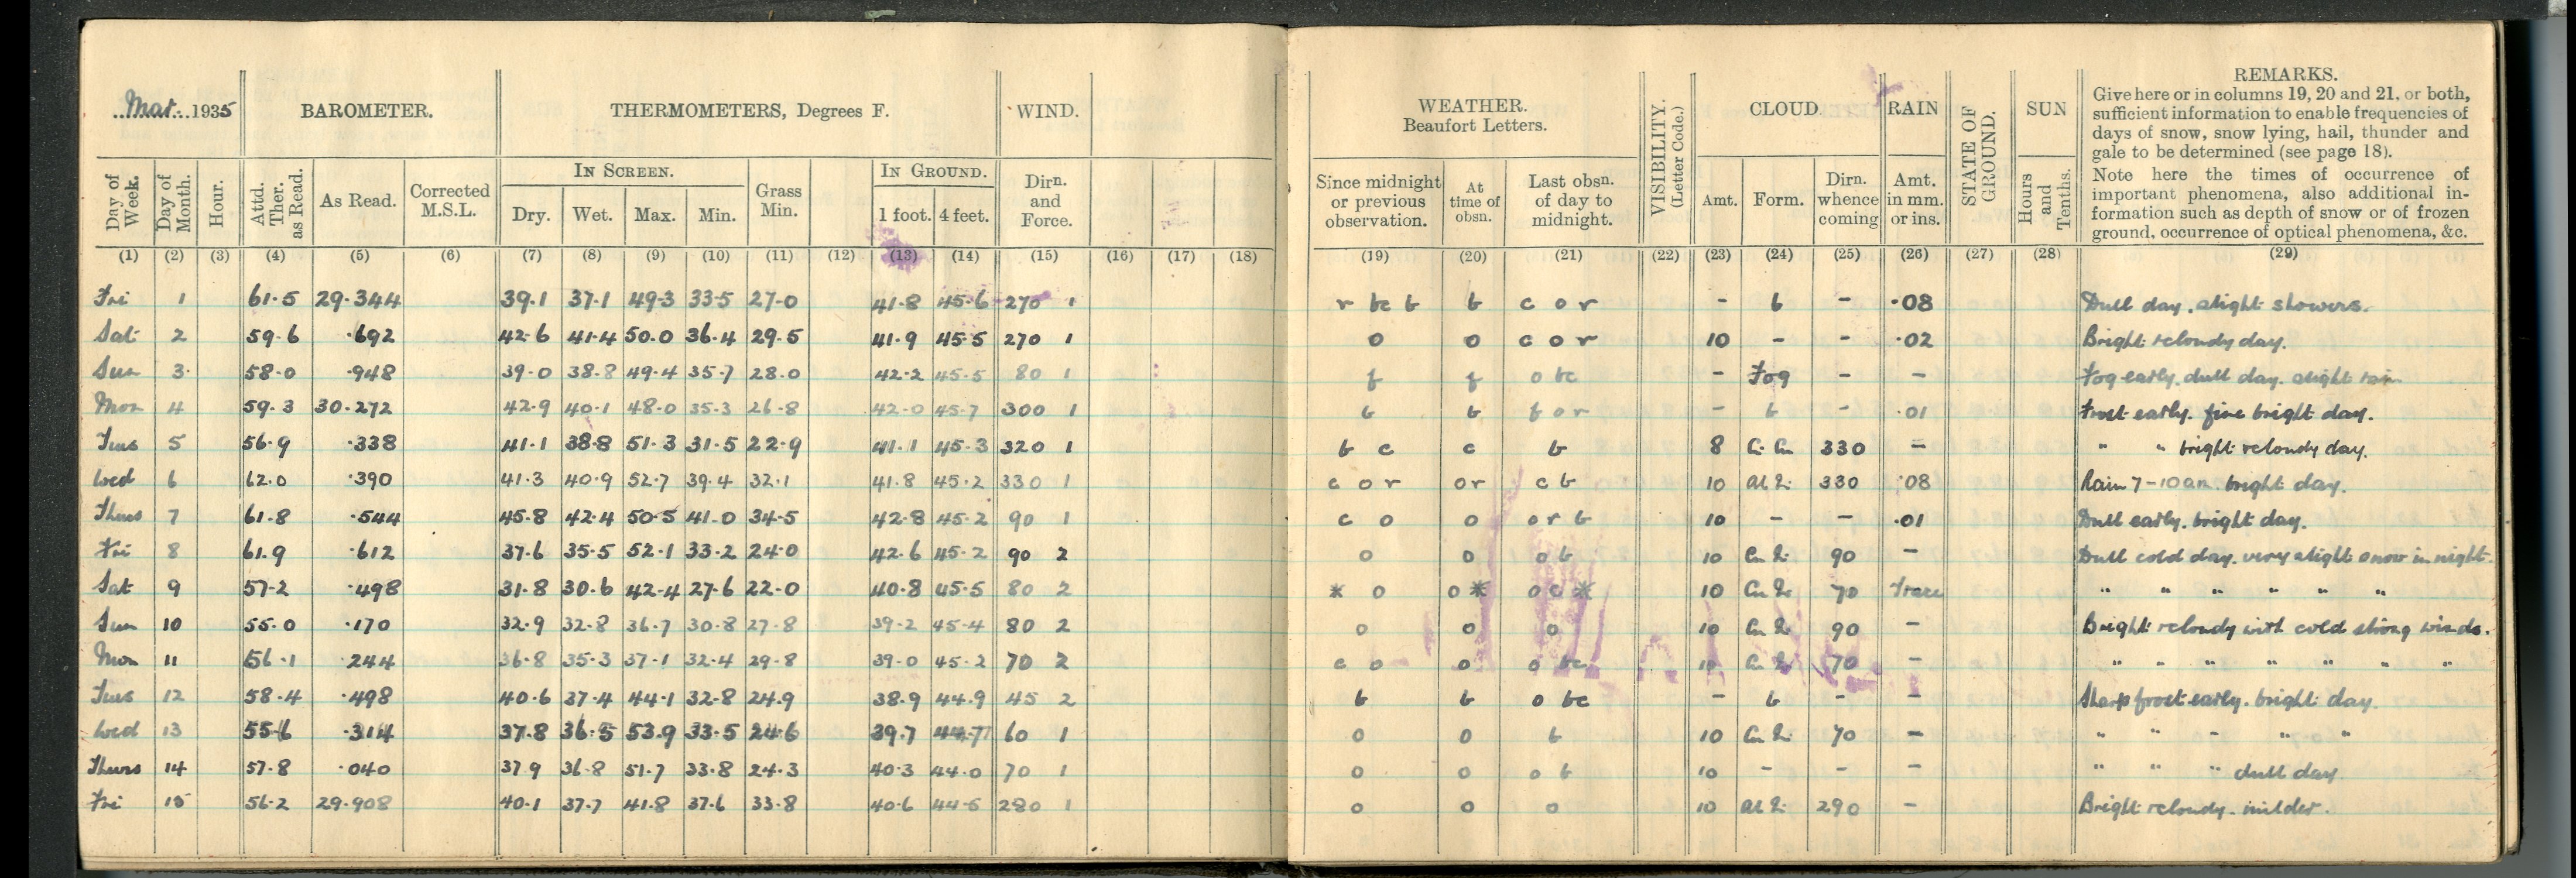 Mar. 1935
BAROMETER.
THERMOMETERS, Degrees F.
WIND.
WEATHER.
Beaufort Letters.
VISIBILITY.
(Letter Code.)
CLOUD
RAIN
STATE OF
GROUND.
SUN
REMARKS.
Give here or in columns 19, 20 and 21, or both,
sufficient information to enable frequencies of
days of snow, snow lying, hail, thunder and
gale to be determined (see page 18).
Note here the times of occurrence of
important phenomena, also additional in-
formation such as depth of snow or of frozen
ground, occurrence of optical phenomena, &c.
Day of Week.
Day of Month.
Hour.
Attd. Ther. as Read.
As Read.
Corrected M.S.L.
IN SCREEN.
Dry. Wet. Max. Min.
Grass Min.
IN GROUND.
1 foot. 4 feet.
Dirn. and Force.
Since midnight or previous observation.
At time of obsn.
Last obsn. of day to midnight.
Amt. Form.
Dirn. whence coming
Amt. in mm. or ins.
Hours and Tenths.
(1) (2) (3) (4) (5) (6) (7) (8) (9) (10) (11) (12) (13) (14) (15) (16) (17) (18) (19) (20) (21) (22) (23) (24) (25) (26) (27) (28) (29)
Fri 1 61.5 29.344 39.1 37.1 49.3 33.5 27.0 41.8 45.6 270 1 r bc b b c o r - b - .08 Dull day. slight showers.
Sat 2 59.6 .692 42.6 41.4 50.0 36.4 29.5 41.9 45.5 270 1 o o c o r 10 - - .02 Bright & cloudy day.
Sun 3 58.0 .948 39.0 38.8 49.4 35.7 28.0 42.2 45.5 80 1 f f o bc - Fog - - Fog early. dull day. slight rain
Mon 4 59.3 30.272 42.9 40.1 48.0 35.3 26.8 42.0 45.7 300 1 b b f o r - b - .01 Frost early. fine bright day.
Tues 5 56.9 .338 41.1 38.8 51.3 31.5 22.9 41.1 45.3 320 1 b c c b 8 330 - " " bright & cloudy day.
Wed 6 62.0 .390 41.3 40.9 52.7 39.4 32.1 41.8 45.2 330 1 c o r o r c b 10 330 .08 Rain 7-10 a.m. bright day.
Thurs 7 61.8 .544 45.8 42.4 50.5 41.0 34.5 42.8 45.2 90 1 c o o o r b 10 - - .01 Dull early. bright day.
Fri 8 61.9 .612 37.6 35.5 52.1 33.2 24.0 42.6 45.2 90 2 o o o b 10 90 - Dull cold day. very slight snow in night.
Sat 9 57.2 .498 31.8 30.6 42.4 27.6 22.0 40.8 45.5 80 2 * o o * o c * 10 70 Trace " " " " " "
Sun 10 55.0 .170 32.9 32.8 36.7 30.8 27.8 39.2 45.4 80 2 o o o 10 90 - Bright & cloudy with cold strong winds.
Mon 11 56.1 .244 36.8 35.3 37.1 32.4 29.8 39.0 45.2 70 2 c o o o bc 10 70 - " " " " " " "
Tues 12 58.4 .498 40.6 37.4 44.1 32.8 24.9 38.9 44.9 45 2 b b o bc - b - - Sharp frost early. bright day.
Wed 13 55.6 .314 37.8 36.5 53.9 33.5 24.6 39.7 44.7 60 1 o o b 10 70 - " " " " "
Thurs 14 57.8 .040 37.9 36.8 51.7 33.8 24.3 40.3 44.0 70 1 o o o b 10 - - - " " " dull day
Fri 15 56.2 29.908 40.1 37.7 41.8 37.6 33.8 40.6 44.6 280 1 o o o 10 290 - Bright & cloudy. milder.